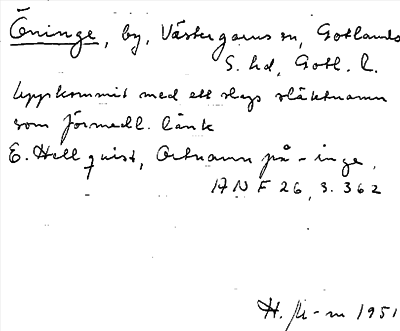 Öninge, by, Västergarns sn, Gotlands
S. hd, Gotl. l.
Uppkommit med ett slags släktnamn
som förmedl. länk
E. Hellquist, Ortnamn på -inge,
ANF 26, s. 362
H. 1951